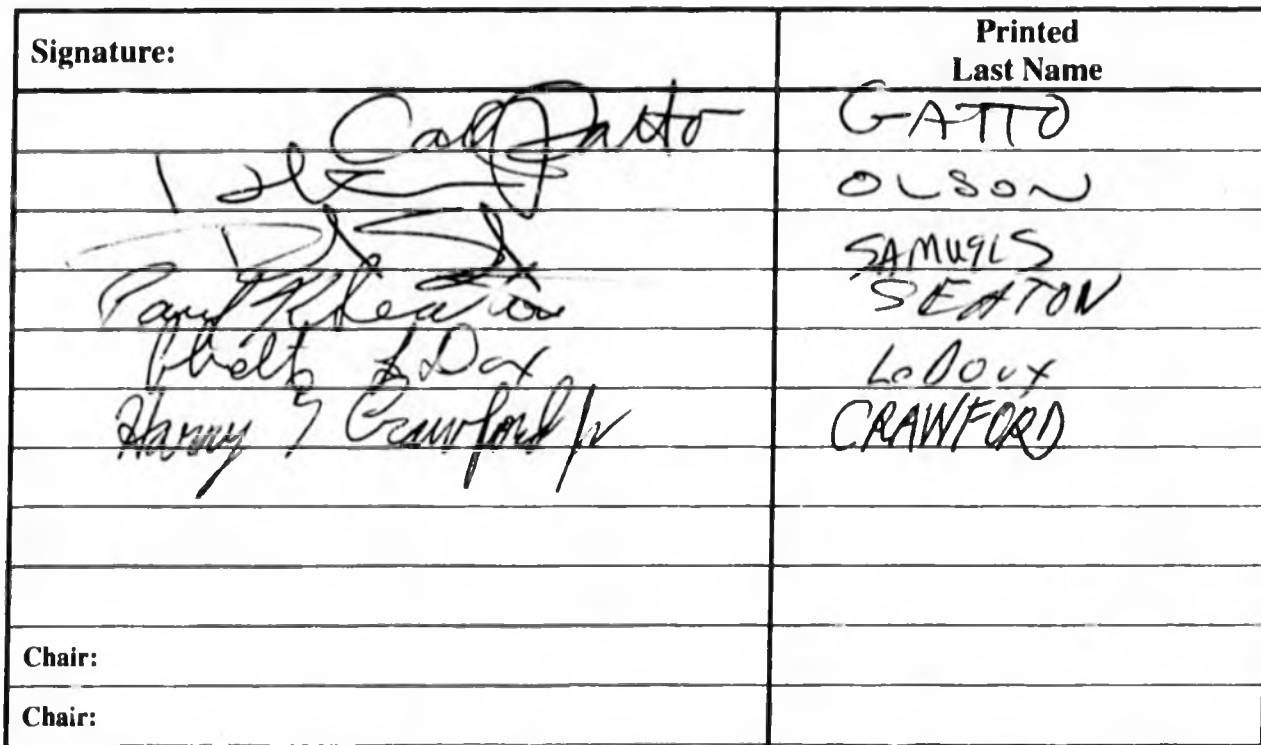 Signature: Printed Last Name
Carl Gatto GATTO
OLSON
SAMUELS
Paul K Seaton SEATON
LeDoux
Harry T Crawford Jr CRAWFORD
Chair:
Chair: